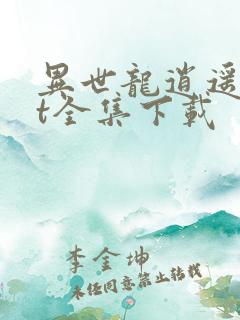 異世龍逍遥
t全集下载
李金坤
未经同意禁止转载